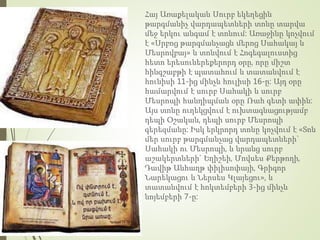 Հայ Առաքելական Սուրբ եկեղեցին
թարգմանիչ վարդապետների տոնը տարվա
մեջ երկու անգամ է տոնում: Առաջինը կոչվում
է «Սրբոց թարգմանչացն մերոց Սահակայ և
Մեսրովբայ» և տոնվում է Հոգեգալուստից
հետո երեսուներեքերորդ օրը, որը միշտ
հինգշաբթի է պատահում և տատանվում է
հունիսի 11-ից մինչև հուլիսի 16-ը: Այդ օրը
համարվում է սուրբ Սահակի և սուրբ
Մեսրոպի հանդիպման օրը Ռահ գետի ափին:
Այս տոնը ուղեկցվում է ուխտագնացությամբ
դեպի Օշական, դեպի սուրբ Մեսրոպի
գերեզմանը: Իսկ երկրորդ տոնը կոչվում է «Տոն
մեր սուրբ թարգմանչաց վարդապետների`
Սահակի ու Մեսրոպի, և նրանց սուրբ
աշակերտների` Եղիշեի, Մովսես Քերթողի,
Դավիթ Անհաղթ փիլիսոփայի, Գրիգոր
Նարեկացու և Ներսես Կլայեցու», և
տատանվում է հոկտեմբերի 3-ից մինչև
նոյեմբերի 7-ը:
Ով փնտրում է,
գտնում է,
և ով որ բախում է
նրա առաջ,
բացվում է